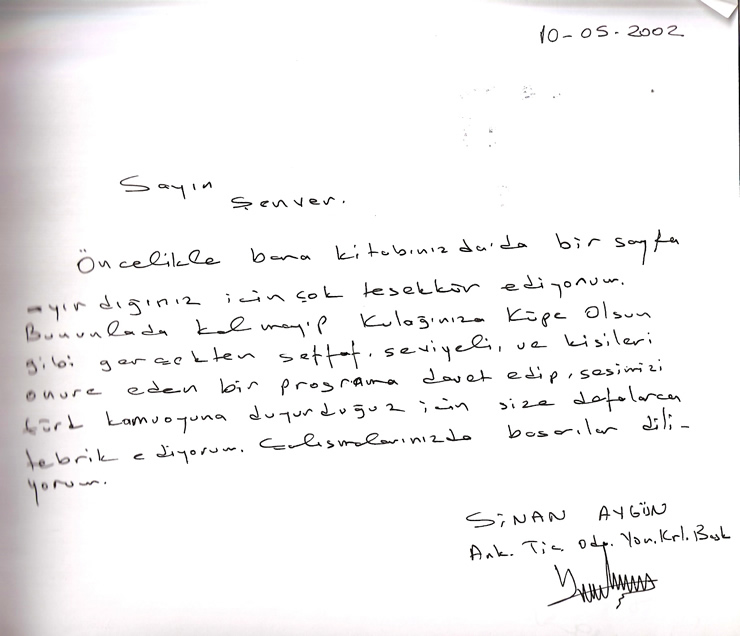 10-05-2002
Sayın
Şenver.
Öncelikle bana kitabınızda'da bir sayfa
ayırdığınız için çok teşekkür ediyorum.
Bununlada kalmayıp Kulağınıza Küpe Olsun
gibi gerçekten şeffaf, seviyeli, ve kişileri
onure eden bir programa davet edip, sesimizi
türk kamuoyuna duyurduğuz için size defalarca
tebrik ediyorum. Çalışmalarınızda başarılar dili-
yorum.
SİNAN AYGÜN
Ank. Tic. Oda. Yön. Krl. Başk